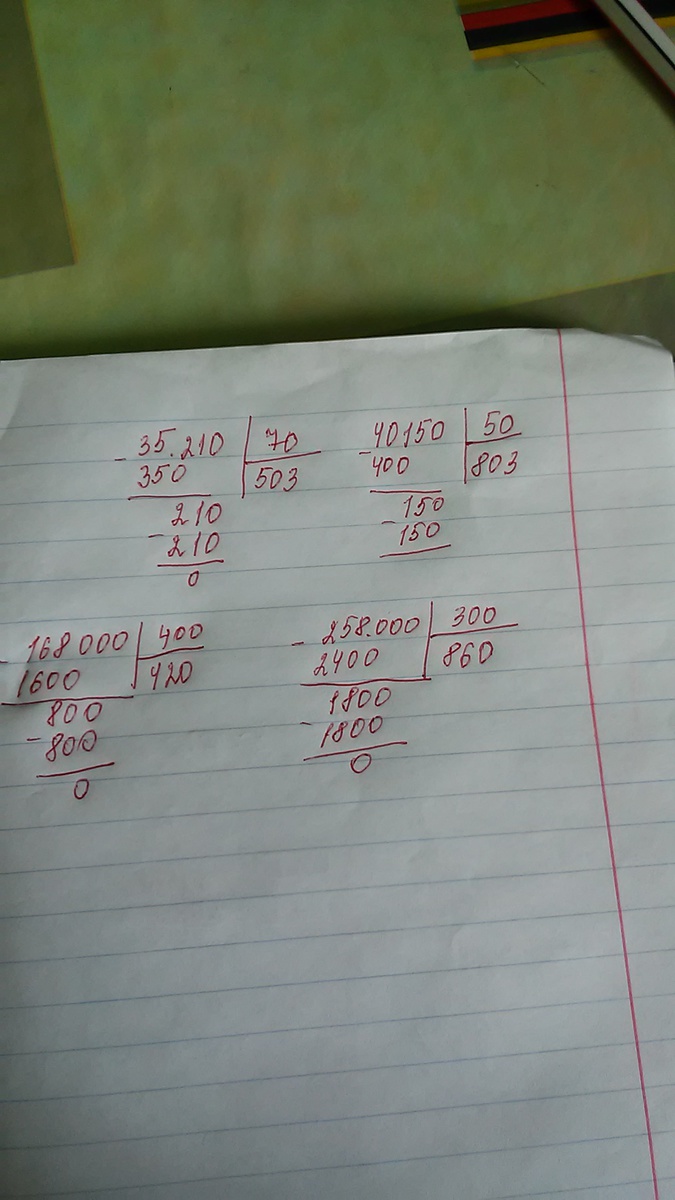 - 35.210 70
350 503
210
- 210
0
- 40150 50
400 803
150
- 150
- 168000 400
1600 420
800
- 800
0
- 258.000 300
2400 860
1800
- 1800
0